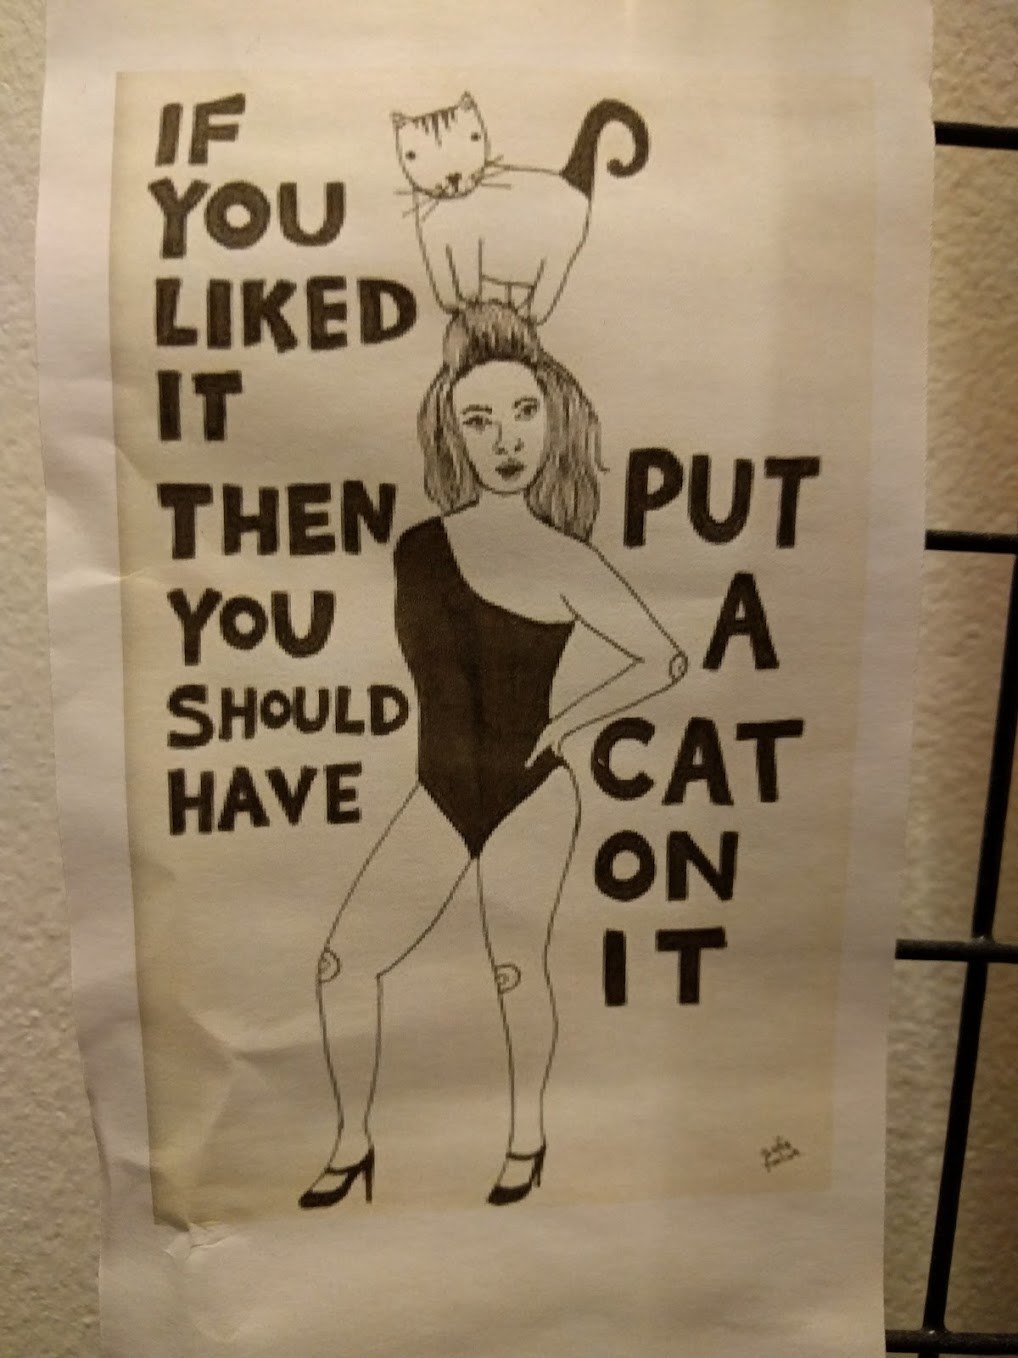 IF
YOU
LIKED
IT
THEN
YOU
SHOULD
HAVE
PUT
A
CAT
ON
IT